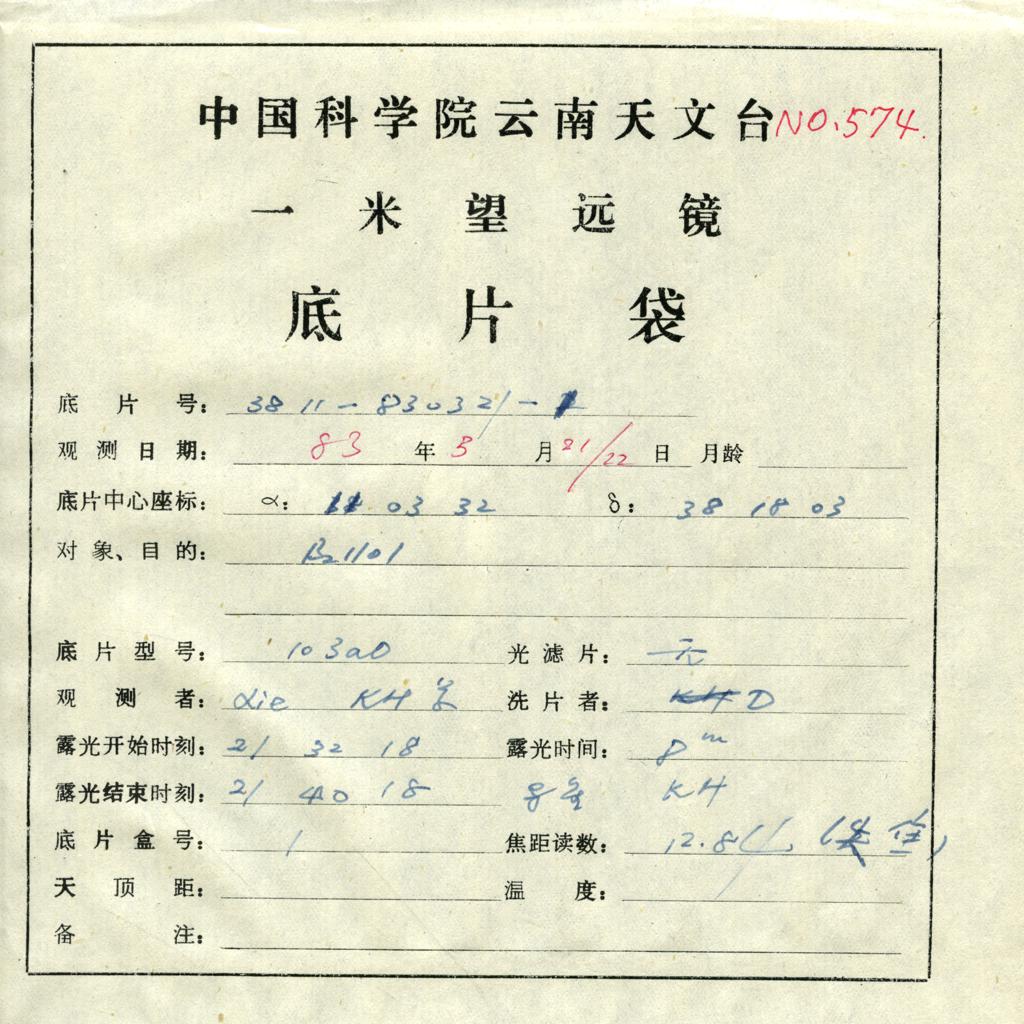 中国科学院云南天文台 NO.574.
一米望远镜
底片袋
底片号： 3811-830321-1
观测日期： 83 年 3 月 21/22 日 月龄
底片中心座标： α： 11 03 32 δ： 38 18 03
对象、目的： B2 1101
底片型号： 103aO 光滤片： 无
观测者： Lie KH 洗片者： D
露光开始时刻： 21 32 18 露光时间： 8m
露光结束时刻： 21 40 18 KH
底片盒号： 1 焦距读数： 12.84
天顶距： 温度：
备注：